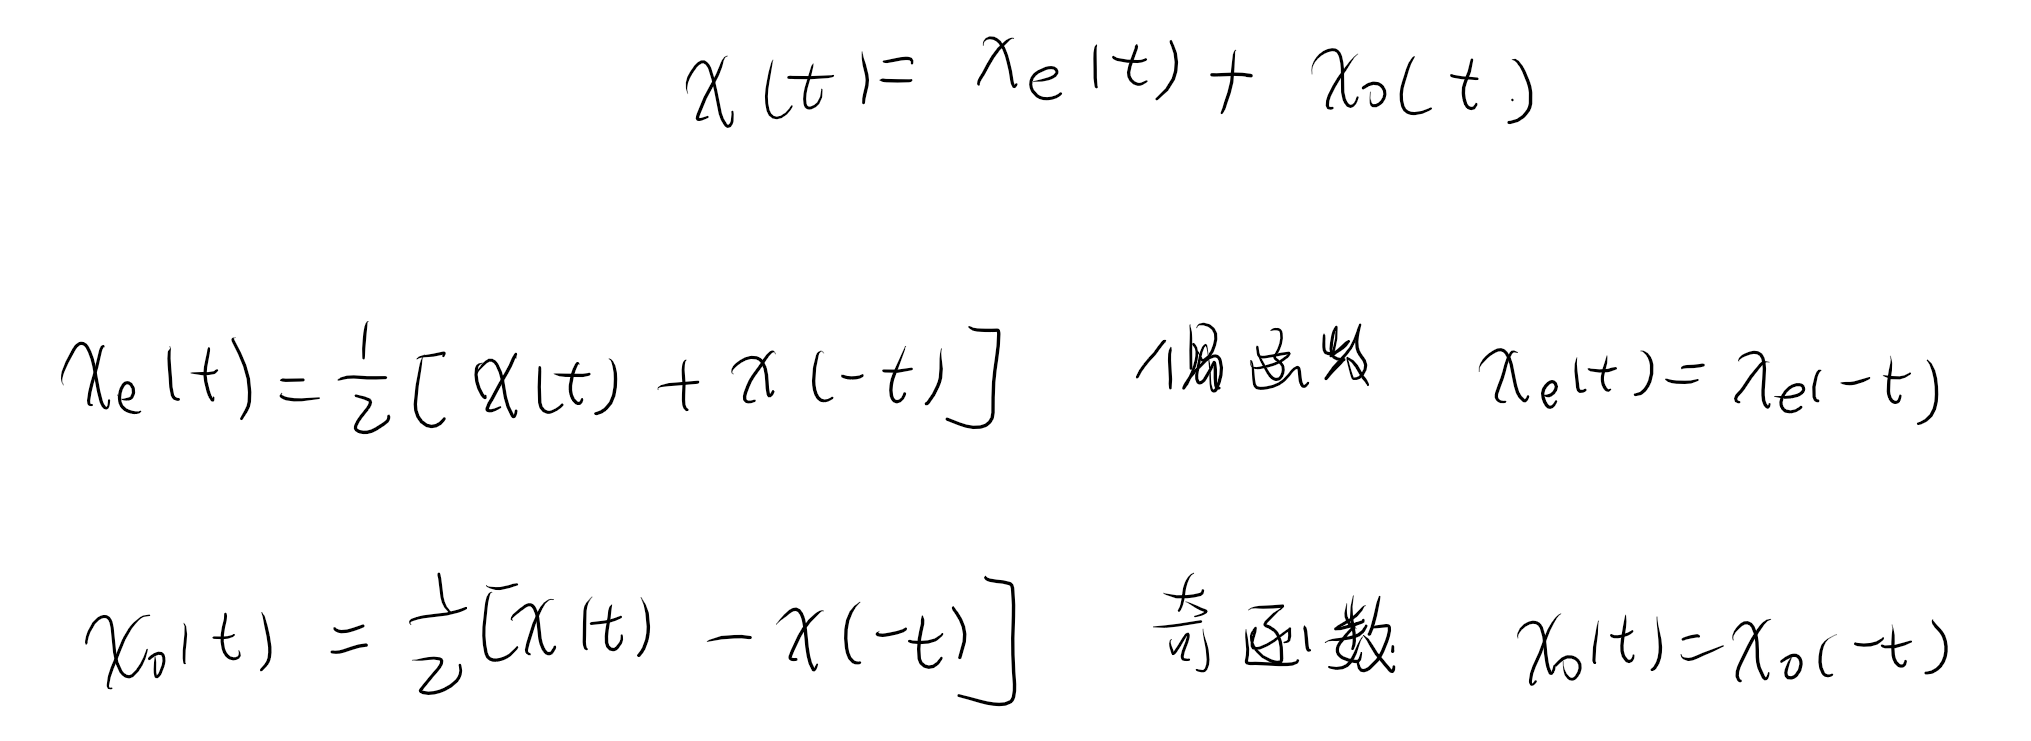 x(t) = xe(t) + xo(t)
xe(t) = 1/2 [x(t) + x(-t)] 偶函数 xe(t) = xe(-t)
xo(t) = 1/2 [x(t) - x(-t)] 奇函数 xo(t) = xo(-t)